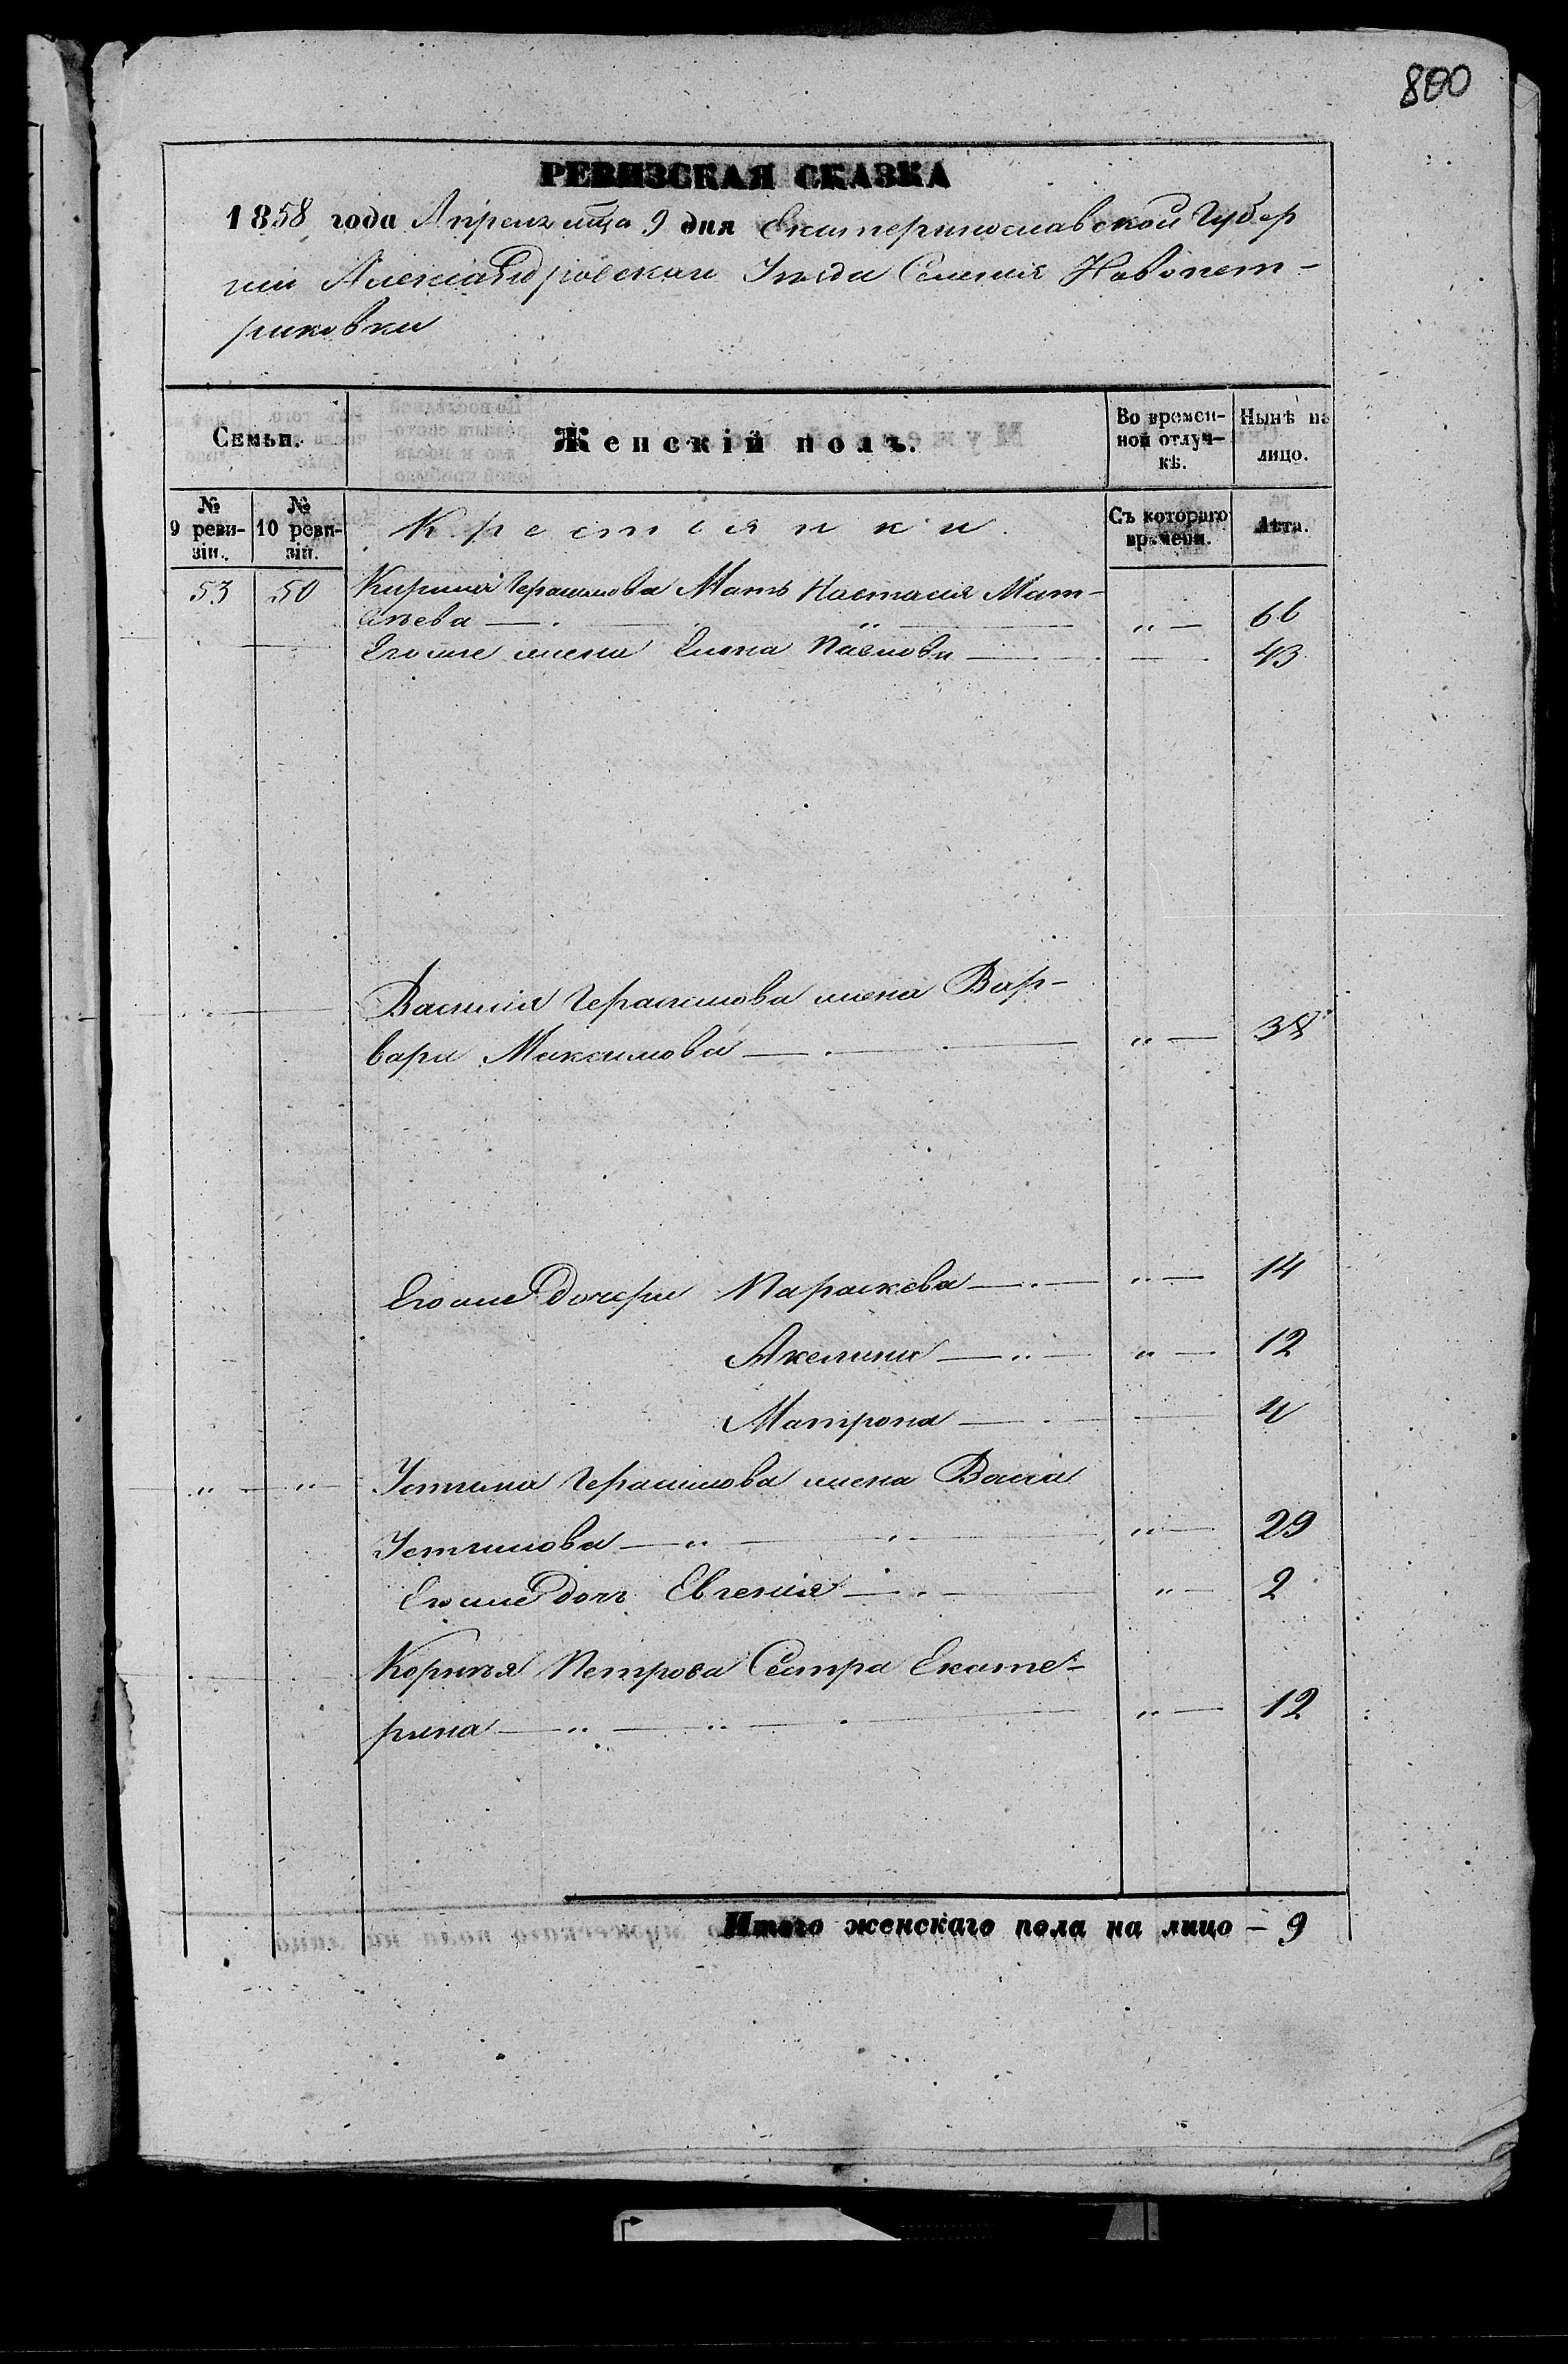 800
РЕВИЗСКАЯ СКАЗКА
1858 года Апреля мца 9 дня Екатеринославской Губер
нии Александровскаго Уезда Селения Новопет-
риковки
Семьи.
Женскій полъ.
Во времен-
ной отлуч-
кѣ.
Нынѣ на
лицо.
№
9 реви-
зіи.
№
10 реви-
зій.
Крестьянки.
Съ котораго
времени.
Лѣта.
53 50 Кирила Герасимова Мать Настасия Мат-
вѣева — „ — 66
Его же жена Елена Павлова — 43
Василия Герасимова жена Вар-
вара Максимова — „ — 38
Его же дочери Параскева — „ — 14
Акелина — „ — 12
Матрона — 4
„ „ Устина Герасимова жена Васса
Устинова — „ — 29
Его же дочь Евгения — „ — 2
Корнѣя Петрова Сестра Екате-
рина — „ — 12
Итого женскаго пола на лицо – 9